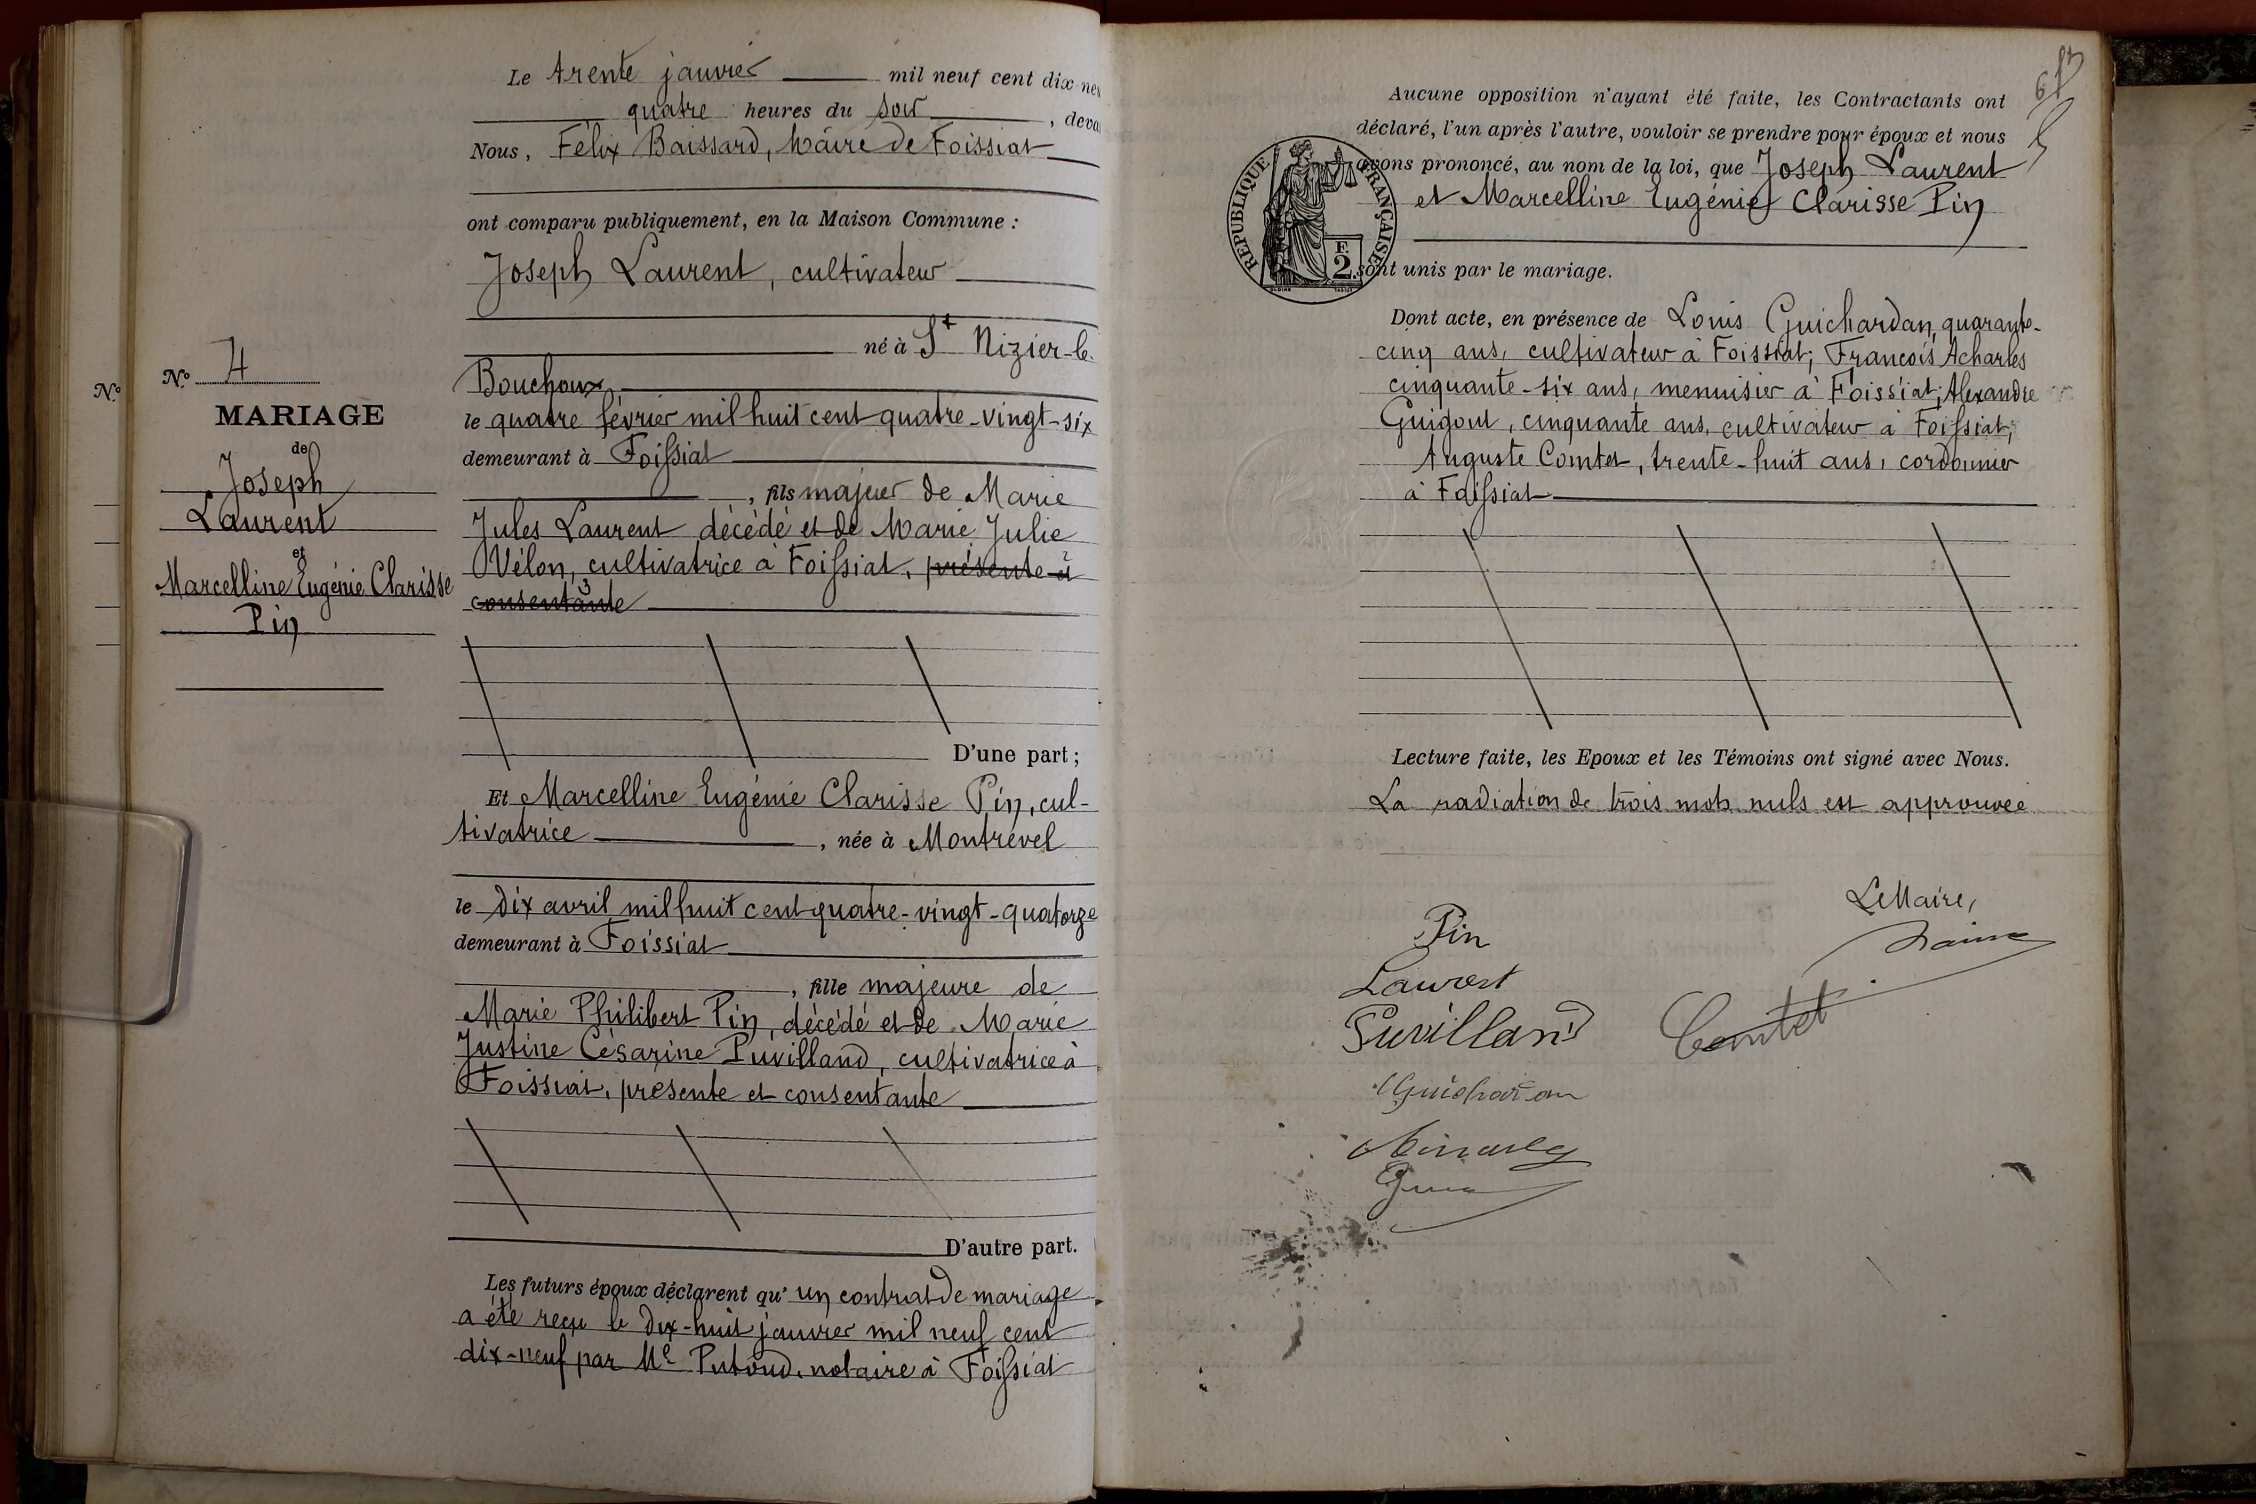 Le trente janvier mil neuf cent dix neu
quatre heures du soir, deva
Nous, Félix Baissard, Maire de Foissiat
ont comparu publiquement, en la Maison Commune :
Joseph Laurent, cultivateur
né à St Nizier-le-
Bouchoux
le quatre février mil huit cent quatre-vingt-six
demeurant à Foissiat
, fils majeur de Marie
Jules Laurent décédé et de Marie Julie
Vélon, cultivatrice à Foissiat, présente et
consentante
D'une part ;
N°
N° 4
MARIAGE
de
Joseph
Laurent
et
Marcelline Eugénie Clarisse
Pin
Et Marcelline Eugénie Clarisse Pin, cul-
tivatrice, née à Montrevel
le dix avril mil huit cent quatre-vingt-quatorze
demeurant à Foissiat
, fille majeure de
Marie Philibert Pin, décédé et de Marie
Justine Césarine Puvilland, cultivatrice à
Foissiat, présente et consentante
D'autre part.
Les futurs époux déclarent qu' un contrat de mariage
a été reçu le dix-huit janvier mil neuf cent
dix-neuf par Me Putoud, notaire à Foissiat
Aucune opposition n'ayant été faite, les Contractants ont
déclaré, l'un après l'autre, vouloir se prendre pour époux et nous
avons prononcé, au nom de la loi, que Joseph Laurent
et Marcelline Eugénie Clarisse Pin
RÉPUBLIQUE FRANÇAISE
F.
2
sont unis par le mariage.
Dont acte, en présence de Louis Guichardan, quarante-
cinq ans, cultivateur à Foissiat; François Acharles
cinquante-six ans, menuisier à Foissiat; Alexandre
Guigout, cinquante ans, cultivateur à Foissiat;
Auguste Comtet, trente-huit ans, cordonnier
à Foissiat
Lecture faite, les Epoux et les Témoins ont signé avec Nous.
La radiation de trois mots nuls est approuvée
Le Maire,
Pin
Laurent
Puvilland
Comtet
Guichardan